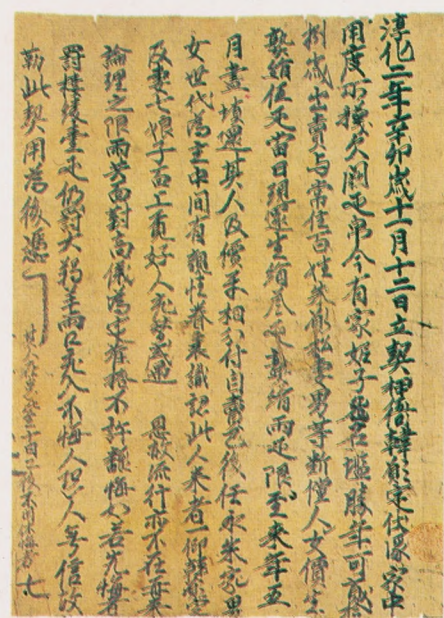 淳化二年辛卯歲十一月十二日立契押衙韓願定伏緣家中
用度不攓欠闕疋帛今有家妮子名勝年可貳拾
捌歲出賣与常住百姓朱願松妻男等斷償人女價生
熟絹伍疋當日現還生絹叁疋熟絹兩疋限至來年五
月盡填還其人及價互相分付自賣已後任永朱家男
女世代為主中間有親情眷表識認此人來者一仰韓願定
及妻七娘子面上覓好人充替或遇恩赦流行亦不在再來
論理之限兩共面對商儀為定准格不許翻悔如若先悔者
罰樓綾壹疋仍罰大羯羊兩口充入不悔人恐人無信故
勒此契用為後憑
其人在患比至十日已後不用休悔者